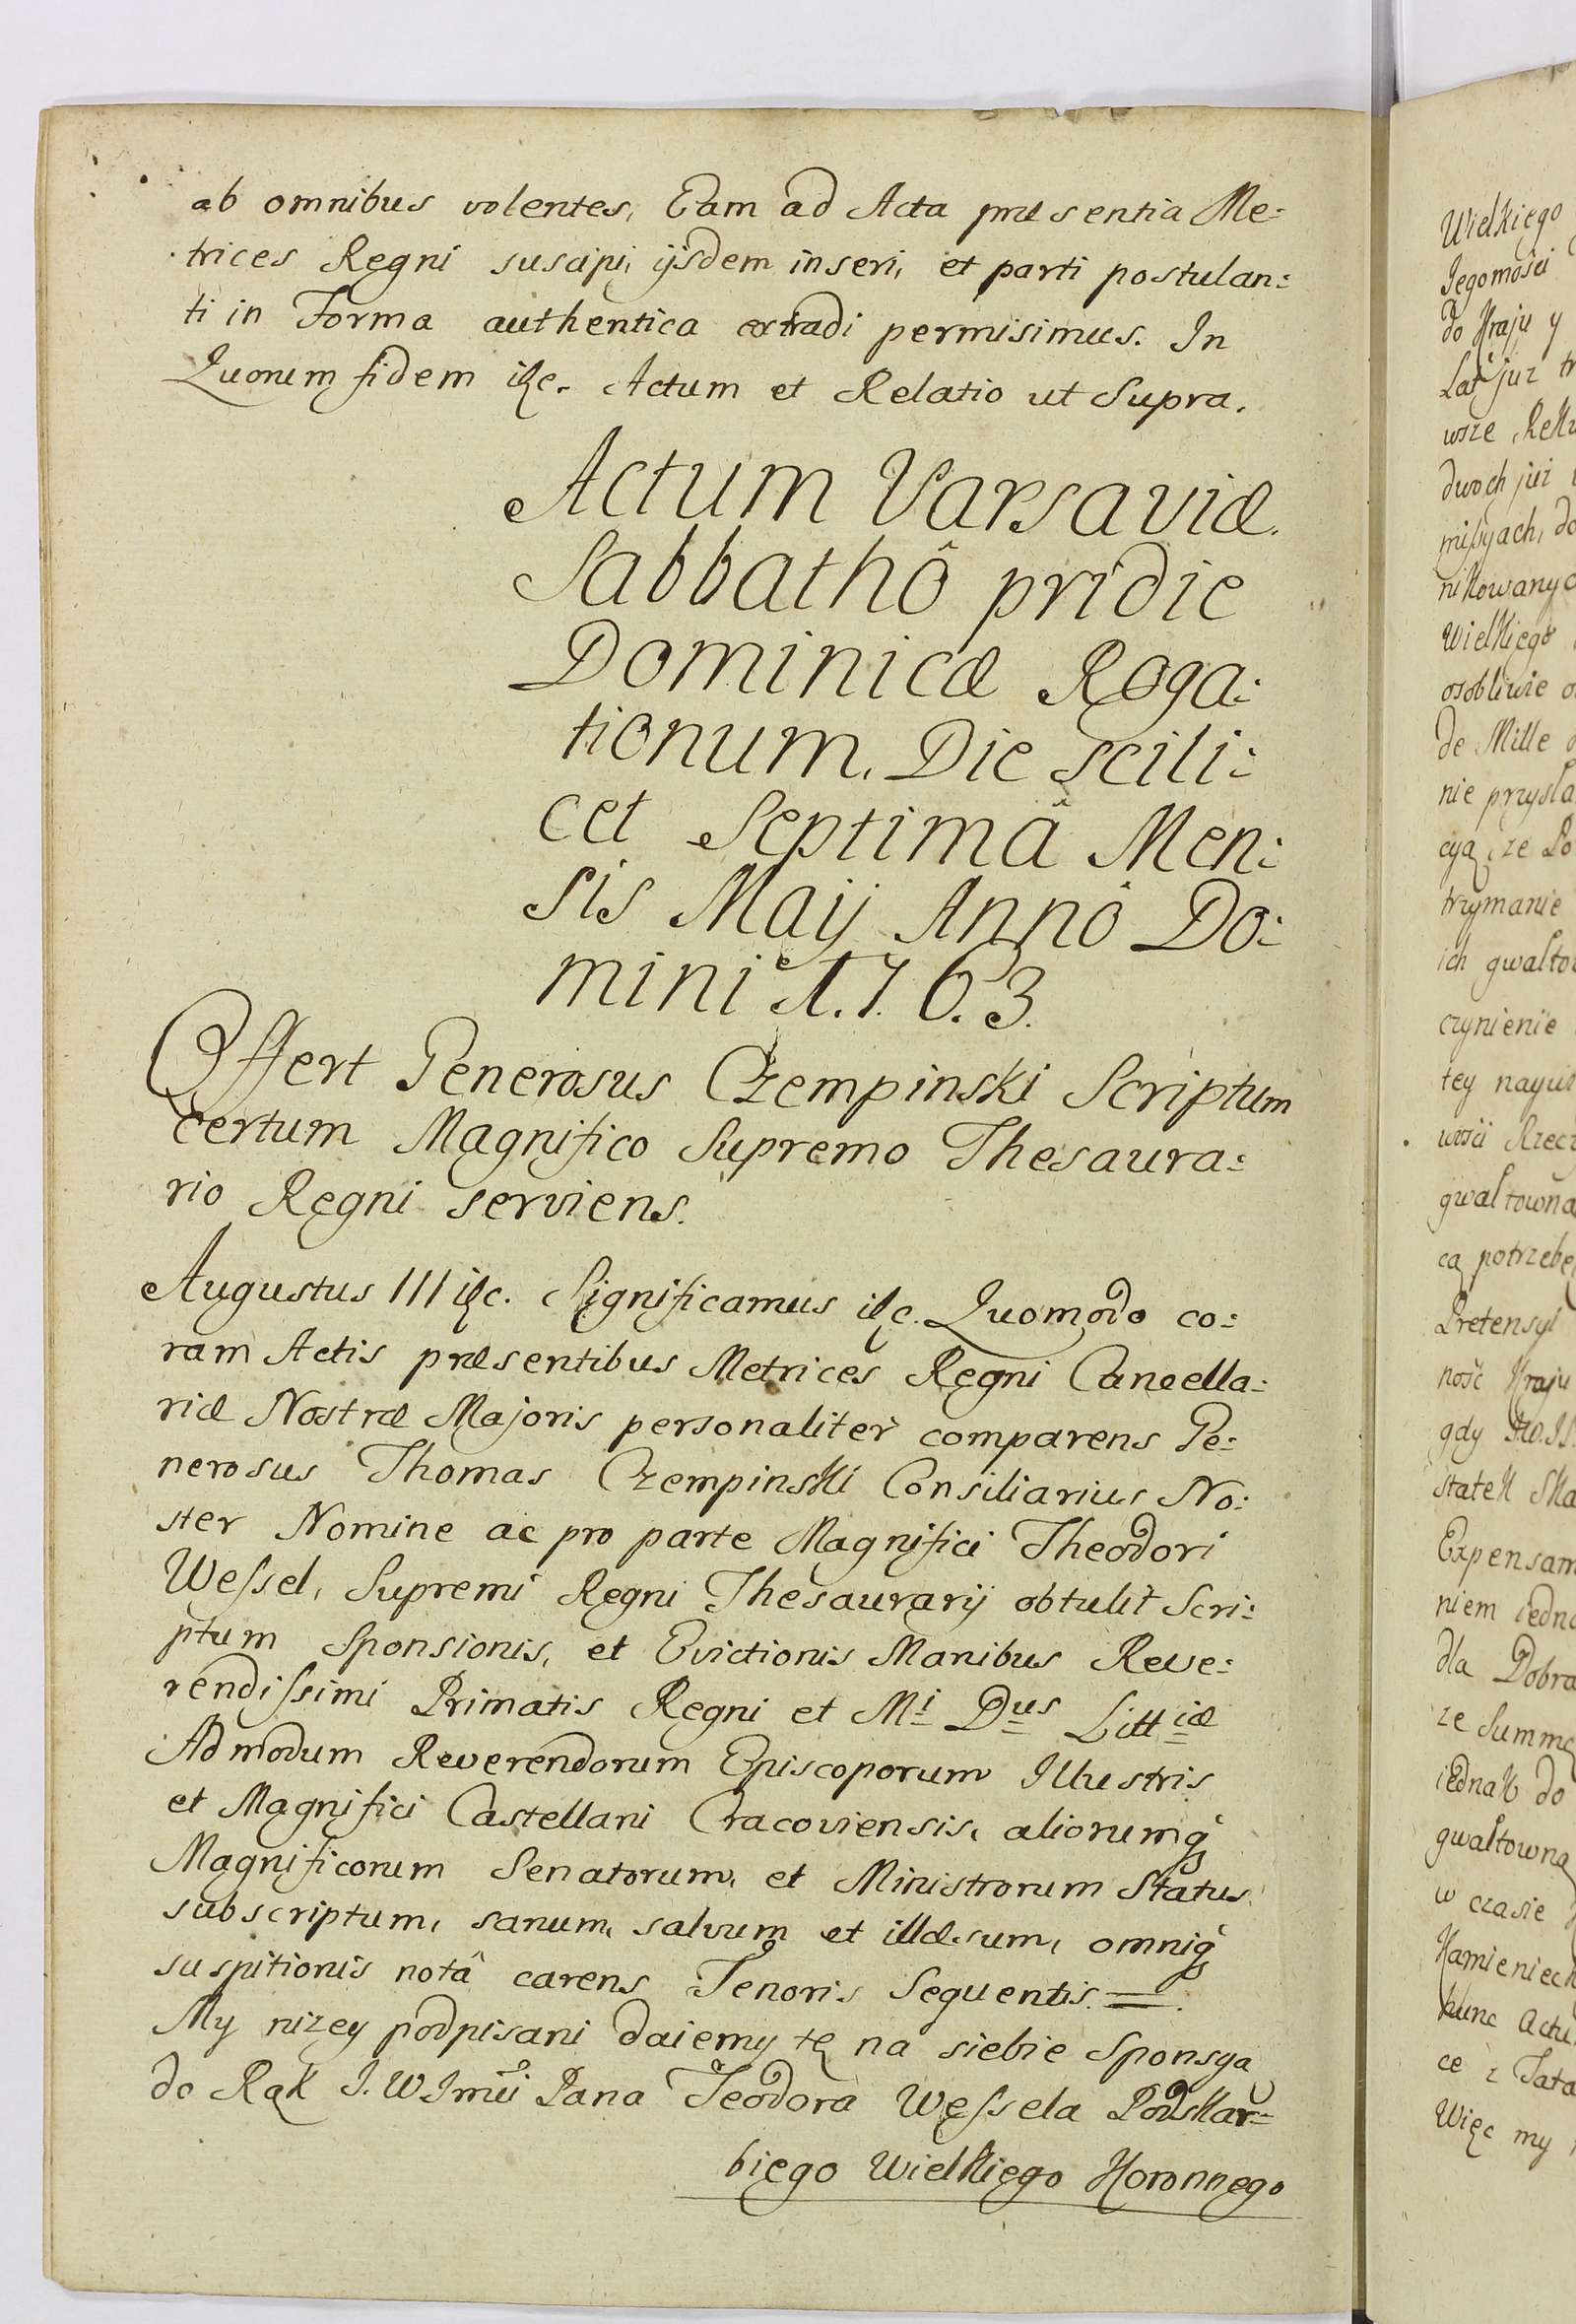 ab omnibus volentes, Eam ad Acta præsentia Me:
trices Regni suscipi, ijsdem inseri, et parti postulan:
ti in Forma authentica extradi permisimus. In
Quorum fidem &c. Actum et Relatio ut Supra.
Actum Varsaviæ.
Sabbathô pridie
Dominicæ Roga:
tionum, Die scili:
cet Septimâ Men:
sis Maij Annô Do:
mini 1.7.6.3.
Offert Generosus Czempinski Scriptum
certum Magnifico Supremo Thesaura:
rio Regni serviens.
Augustus III &c. Significamus &c. Quomodo co:
ram Actis præsentibus Metrices Regni Cancella:
riæ Nostræ Majoris personaliter comparens Ge:
nerosus Thomas Czempinski Consiliarius No:
ster Nomine ac pro parte Magnifici Theodori
Weſsel, Supremi Regni Thesaurarij obtulit Scri:
ptum Sponsionis, et Evictionis Manibus Reve:
rendiſsimi Primatis Regni et Mi Dus Littiæ
Admodum Reverendorum Episcoporum Illustris
et Magnifici Castellani Cracoviensis, aliorumq̃
Magnificorum Senatorum, et Ministrorum Status
subscriptum, sanum, salvum et illæsum, omniq̃
suspitionis notâ carens Tenoris Sequentis. =
My nizey podpisani daiemy tę na siebie Sponsyą
do Rąk J. W Jmći Pana Teodora Weſsela Podskar=
biego Wielkiego Koronnego
Wielkiego
Jegomości
do Kraju y
Lat już
wsze
dwoch już
miſsyach, do
nikowanyc
Wielkiego
osobliwie
de Mille
nie przysła
cyą, ze Po
trzymanie
ich gwałto
czynienie
tey nayw
wości Rzecz
gwałtowną
cą potrzebę
Pretensyi
ność Kraju
gdy
statek Ska
Expensam
niem iedna
dla Dobra
ze Summę
iednak do
gwałtowną
w czasie
Kamieniec
hunc Actu
ce z Tata
Więc my